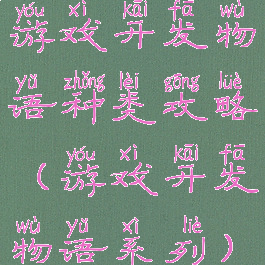 yóu xì kāi fā wù
游戏开发物
yǔ zhǒng lèi gōng lüè
语种类攻略
yóu xì kāi fā
（游戏开发
wù yǔ xì liè
物语系列）